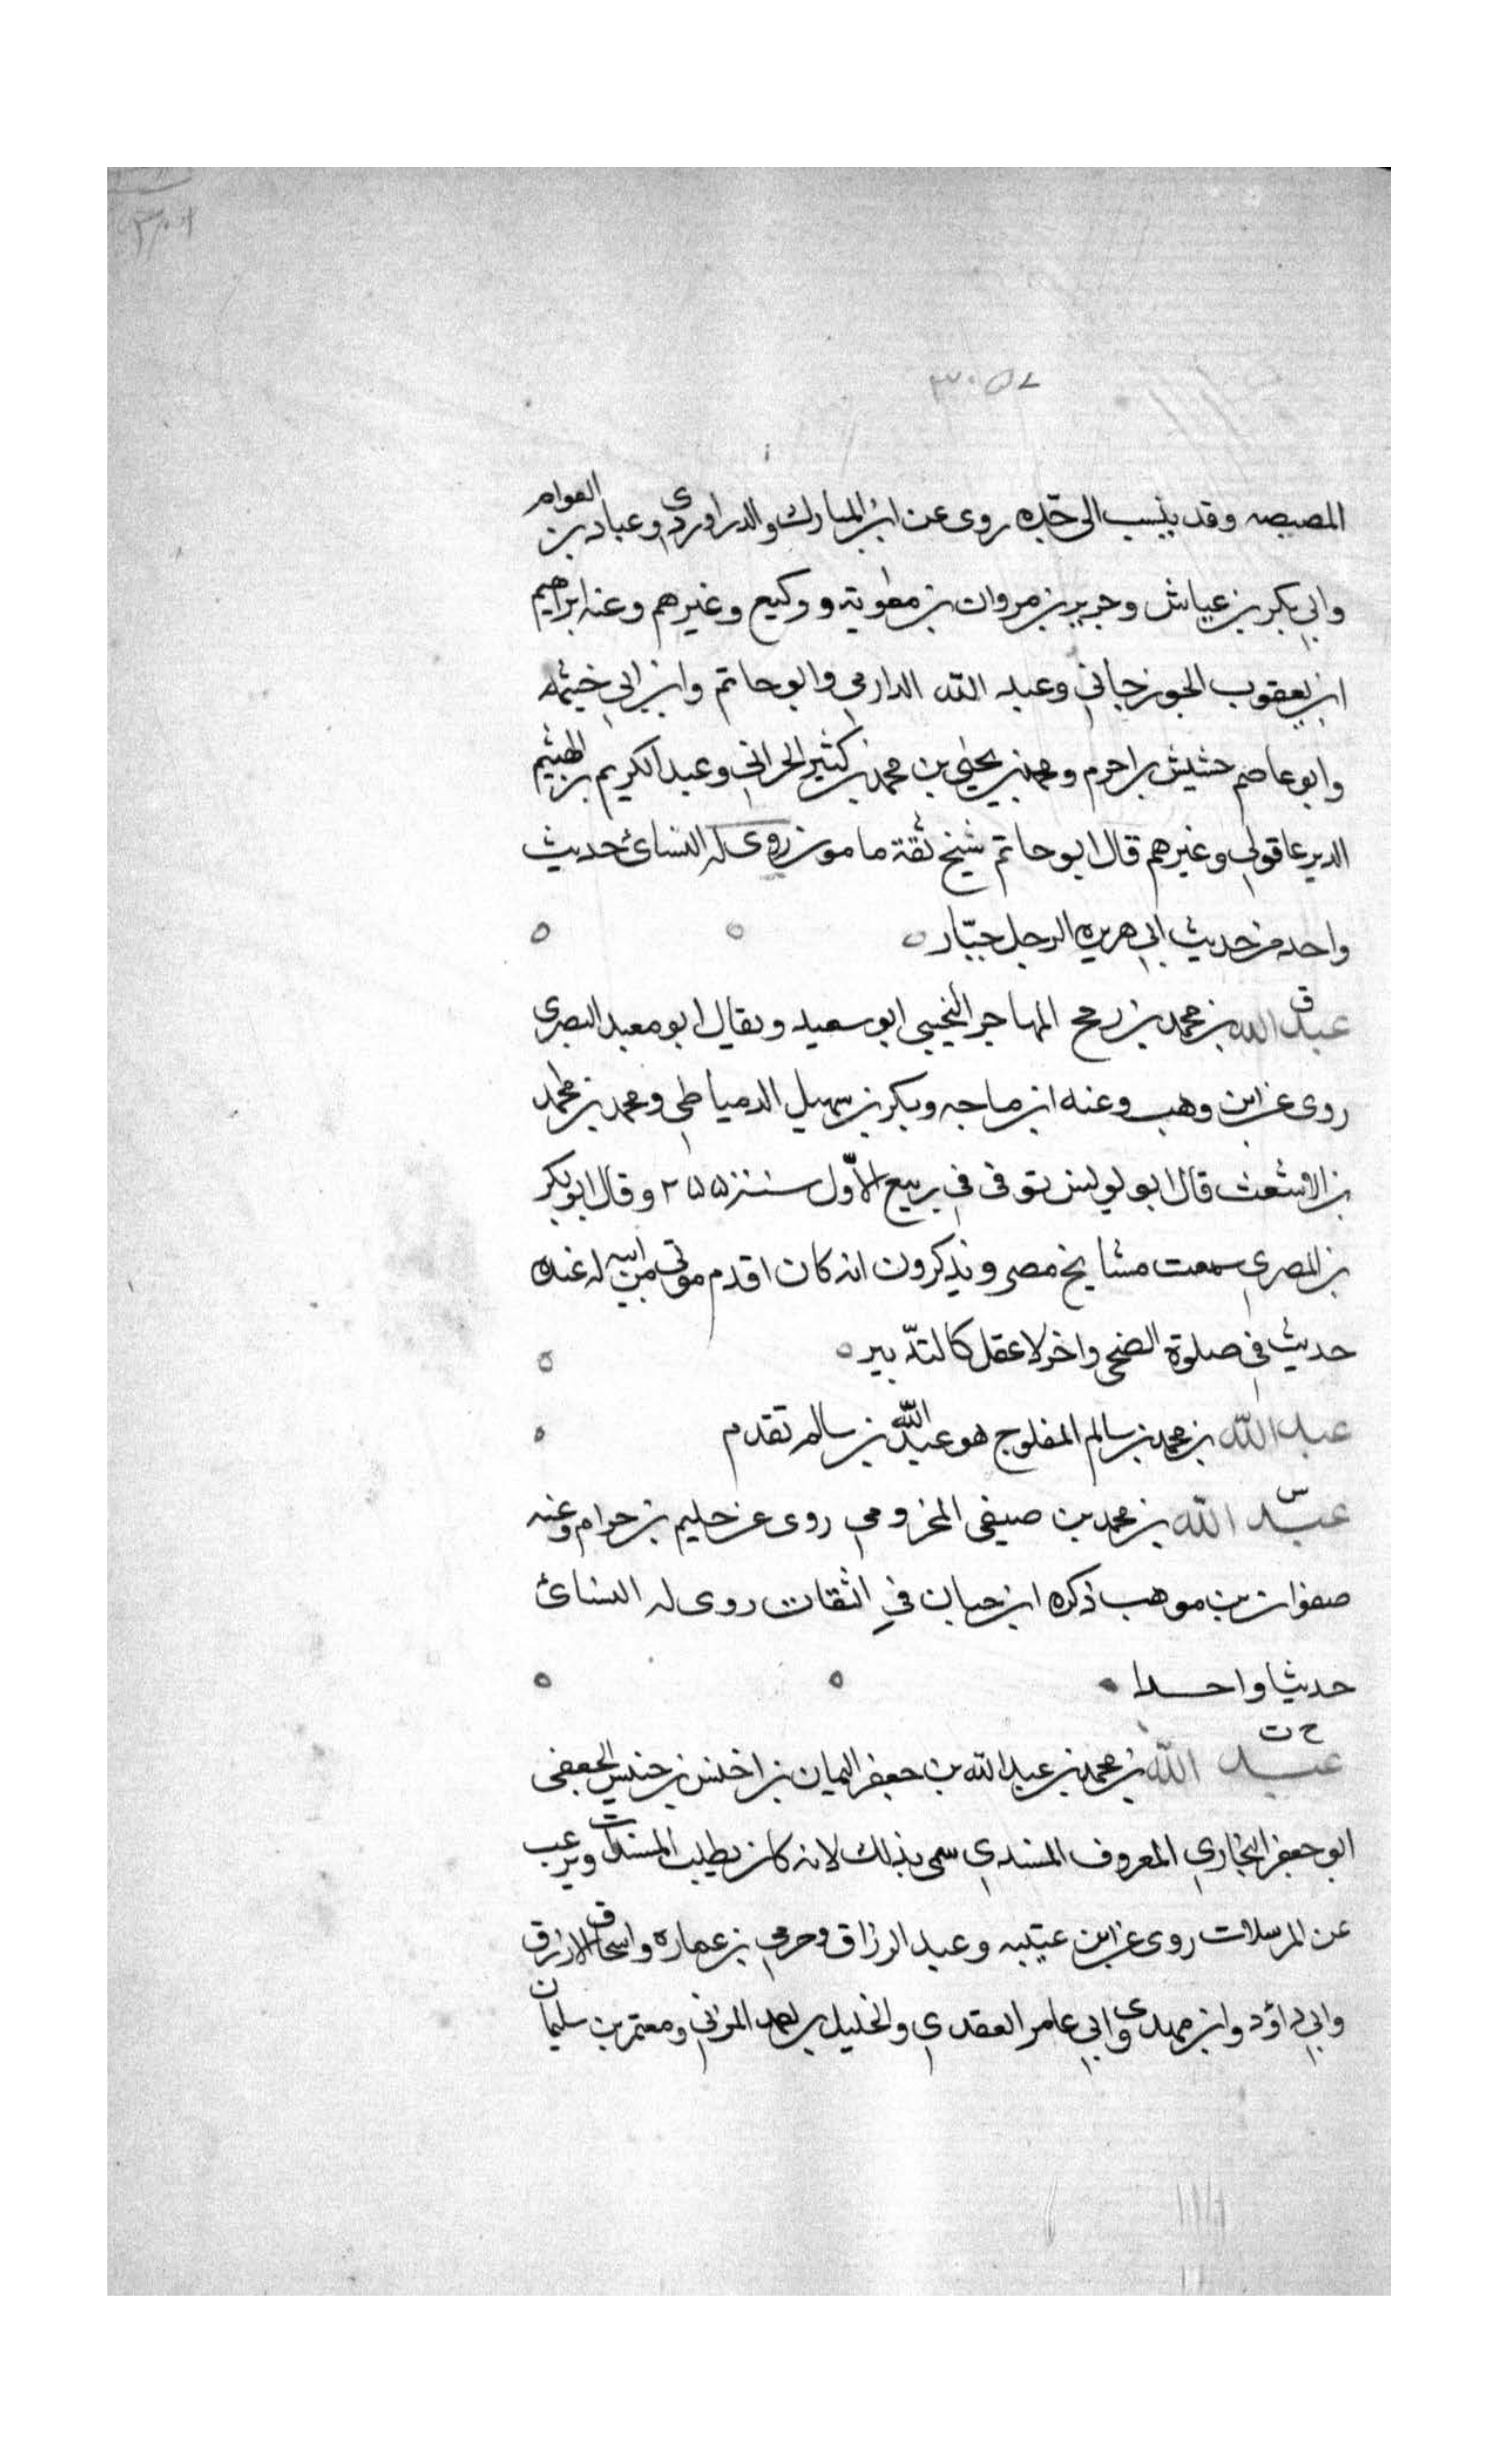 ٣٠٥٧
المصيصه وقد ينسب الى جده روى عن ابن المبارك والدراوردي وعباد بن العوام
وابي بكر بن عياش وجرير بن مروان بن معوية ووكيع وغيرهم وعنه ابراهيم
ابن يعقوب الجوزجاني وعبد الله الدارمي وابو حاتم وابن ابي خيثمه
وابو عاصم حشيش بن احرم ومحمد بن يحيى بن محمد بن كثير الحراني وعبد الكريم بن الهيثم
الدير عاقولي وغيرهم قال ابو حاتم شيخ ثقة مامون روى له النسائ حديث
واحد من حديث ابي هريره الرجل جبّار
ق
عبد الله بن محمد بن رمح المهاجر التجيبي ابو سعيد ويقال ابو معبد البصرى
روى عن ابن وهب وعنه ابن ماجه وبكر بن سهيل الدمياطي ومحمد بن محمد
بن الاشعث قال ابو يونس توفى في ربيع الاول سنة ٢٥٥ وقال ابو بكر
بن المصري سمعت مشايخ مصر ويذكرون انه كان اقدم موتى من ابيه له عنده
حديث في صلوة الضحى واخر لا عقل كالتدبير
عبد الله بن محمد بن سالم المفلوج هو عبد الله بن سالم تقدم
س
عبد الله بن محمد بن صيفى المخزومي روى عن حليم بن حرام وعنه
صفوان بن موهب ذكره ابن حبان في الثقات روى له النسائ
حديثا واحدا
خ ت
عبد الله بن محمد بن عبد الله بن جعفر اليمان بن اخنس بن خنيس الجعفى
ابو جعفر البخاري المعروف المسندي سمى بذلك لانه كان يطلب المسندات ويرغب
عن المرسلات روى عن ابن عيينه وعبد الرزاق وحرمي بن عماره واسحاق الازرق
وابي داؤد وابن مهدى وابي عامر العقدي والخليل بن احمد المزني ومعتمر بن سليمان